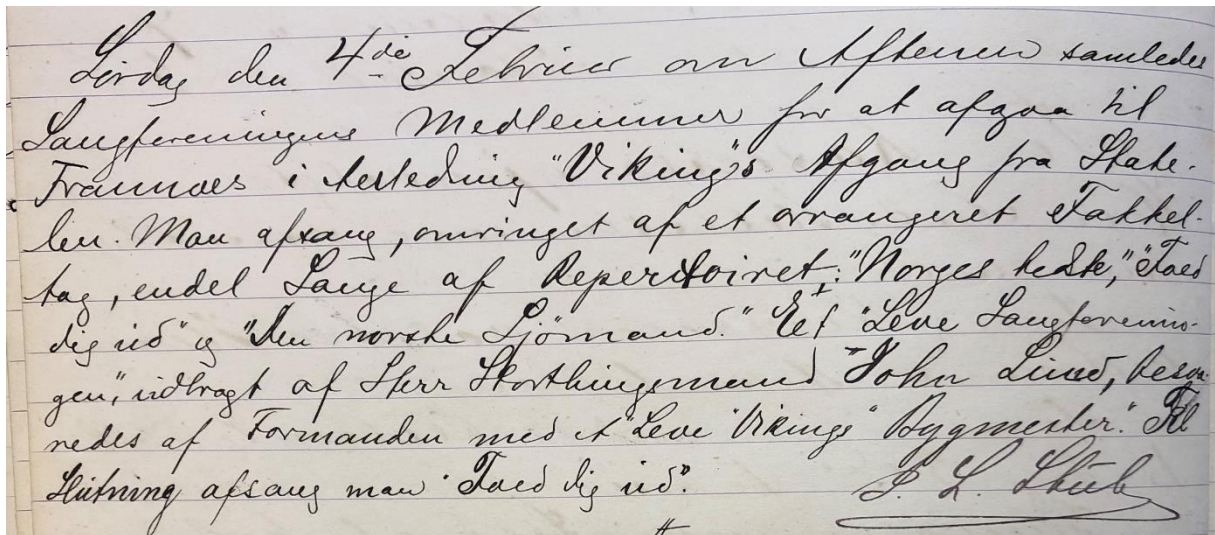 Lørdag den 4de Februar om Aftenen samledes
Sangforeningens Medlemmer for at afgaa til
Framnæs i Anledning "Viking"s Afgang fra Stabe-
len. Man afsang, omringet af et arrangeret Fakkel-
tog, endel Sange af Repertoiret: "Norges bedste," "Foed
dig ud" og "Den norske Sjömand." Et "Leve Sangforenin-
gen," udbragt af Herr Storthingsmand John Lund, besva-
redes af Formanden med et "Leve "Vikings" Bygmester." Til
Slutning afsang man "Foed dig ud".
L. Stub